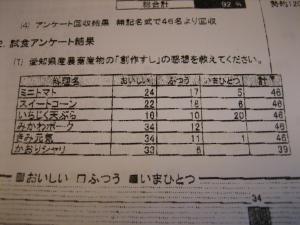 総合計 92 %
(4) アンケート回収結果 無記名式で46名より回収
2. 試食アンケート結果
(1) 愛知県産農畜産物の「創作すし」の感想を教えてください。
料理名 おいしい ふつう いまひとつ 計
ミニトマト 24 17 5 46
スイートコーン 22 18 6 46
いちじく天ぷら 16 10 20 46
みかわポーク 34 12 46
きみ元気 34 11 46
かおりシャリ 33 6 39
おいしい ふつう いまひとつ
34